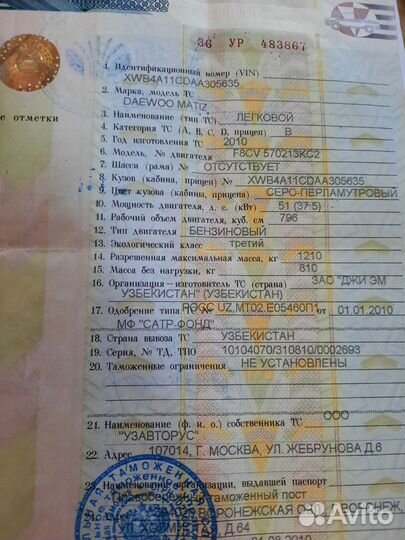 36 УР 483867
1. Идентификационный номер (VIN)
XWB4A11CDAA305635
2. Марка, модель ТС
DAEWOO MATIZ
е отметки
3. Наименование (тип ТС) ЛЕГКОВОЙ
4. Категория ТС (А, В, С, D, прицеп) В
5. Год изготовления ТС 2010
6. Модель, № двигателя F8CV 570213KC2
7. Шасси (рама) № ОТСУТСТВУЕТ
8. Кузов (кабина, прицеп) № XWB4A11CDAA305635
9. Цвет кузова (кабины, прицепа) СЕРО-ПЕРЛАМУТРОВЫЙ
10. Мощность двигателя, л. с. (кВт) 51 (37.5)
11. Рабочий объем двигателя, куб. см 796
12. Тип двигателя БЕНЗИНОВЫЙ
13. Экологический класс третий
14. Разрешенная максимальная масса, кг 1210
15. Масса без нагрузки, кг 810
16. Организация—изготовитель ТС (страна) ЗАО "ДЖИ ЭМ
УЗБЕКИСТАН" (УЗБЕКИСТАН)
17. Одобрение типа ТС № РОСС UZ.МТ02.Е05460П1 от 01.01.2010
МФ "САТР-ФОНД"
18. Страна вывоза ТС УЗБЕКИСТАН
19. Серия, № ТД, ТПО 10104070/310810/0002693
20. Таможенные ограничения НЕ УСТАНОВЛЕНЫ
21. Наименование (ф. и. о.) собственника ТС ООО
"УЗАВТОРУС"
22. Адрес 107014, Г. МОСКВА, УЛ. ЖЕБРУНОВА Д.6
23. Наименование организации, выдавшей паспорт
Правобережный таможенный пост
24. Адрес ВОРОНЕЖСКАЯ ОБЛ., Г. ВОРОНЕЖ,
Д.64
Avito